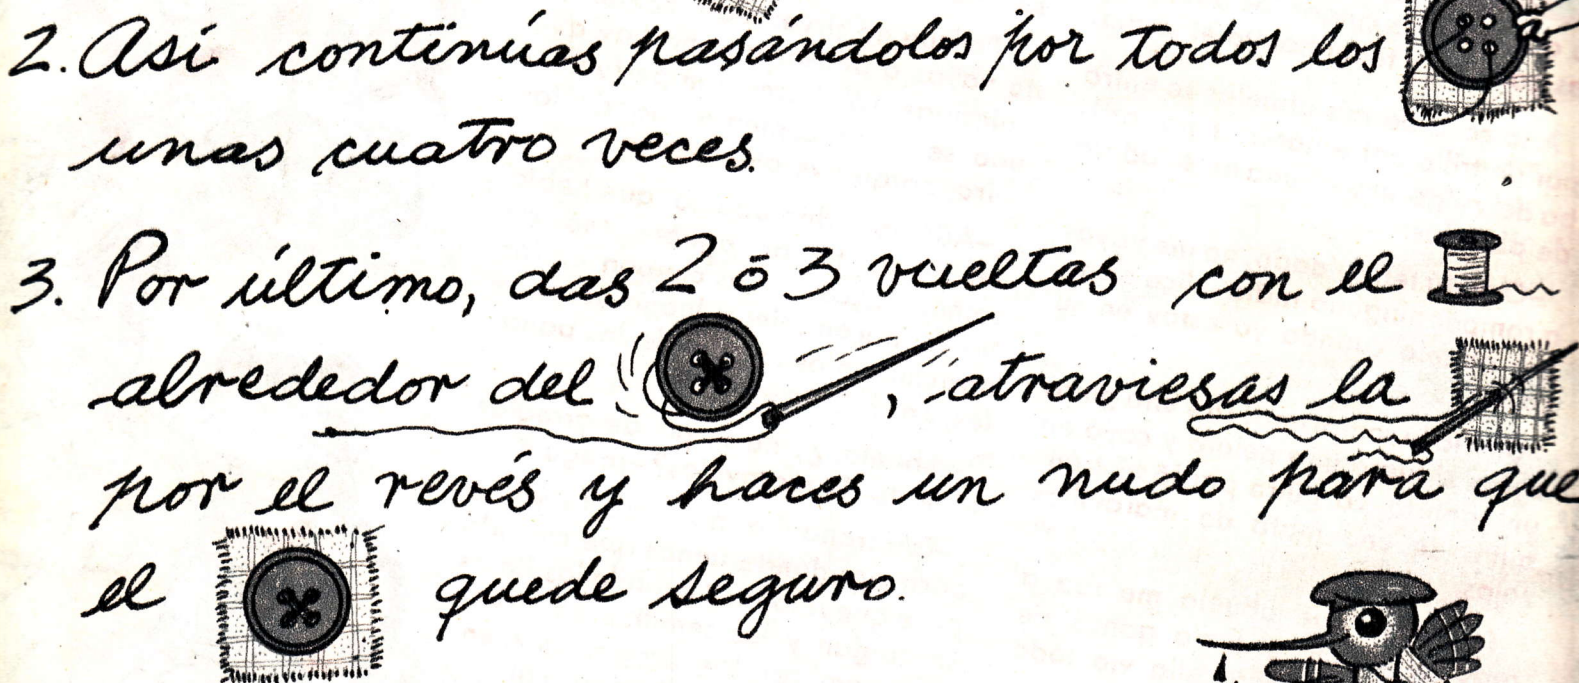 2. Así continúas pasándolos por todos los
unas cuatro veces.
3. Por último, das 2 ó 3 vueltas con el
alrededor del , atraviesas la
por el revés y haces un nudo para que
el quede seguro.